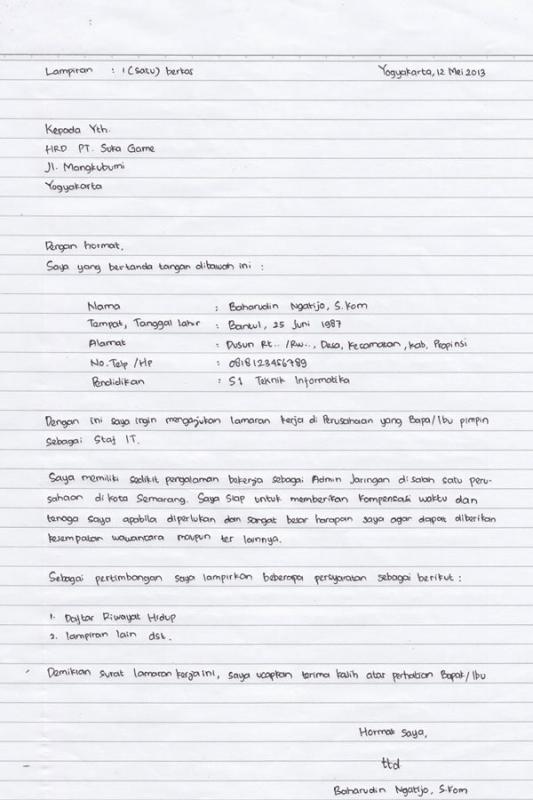 Lampiran : 1 (satu) berkas Yogyakarta, 12 Mei 2013
Kepada Yth.
HRD PT. Suka Game
Jl. Mangkubumi
Yogyakarta
Dengan hormat,
Saya yang bertanda tangan dibawah ini :
Nama : Baharudin Ngatijo, S.Kom
Tempat, Tanggal lahir : Bantul, 25 Juni 1987
Alamat : Dusun Rt.. /Rw.., Desa, Kecamatan, Kab, Propinsi
No. Telp /Hp : 0818123456789
Pendidikan : S1 Teknik Informatika
Dengan ini saya ingin mengajukan lamaran kerja di Perusahaan yang Bapa/Ibu pimpin
sebagai Staf IT.
Saya memiliki sedikit pengalaman bekerja sebagai Admin Jaringan di salah satu peru-
sahaan di kota Semarang. Saya siap untuk memberikan kompensasi waktu dan
tenaga saya apabila diperlukan dan sangat besar harapan saya agar dapat diberikan
kesempatan wawancara maupun tes lainnya.
Sebagai pertimbangan saya lampirkan beberapa persyaratan sebagai berikut :
1. Daftar Riwayat Hidup
2. lampiran lain dst.
Demikian surat lamaran kerja ini, saya ucapkan terima kasih atas perhatian Bapak/Ibu
Hormat saya,
ttd
Baharudin Ngatijo, S.Kom